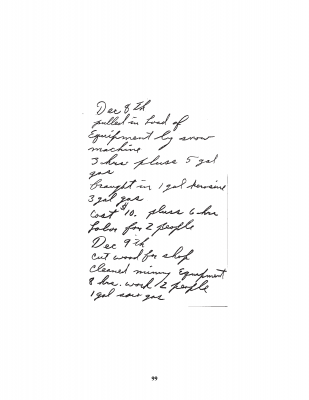 Dec 8th
pulled in Load of
Equipment by snow
machine
3 hrs pluss 5 gal
gas
braught in 1 gal kerosine
3 gal gas
Cost $10. pluss 6 hr
Labor for 2 people
Dec 9th
cut wood for shop
cleaned mining Equipment
8 hrs. work 2 people
1 gal saw gas
99